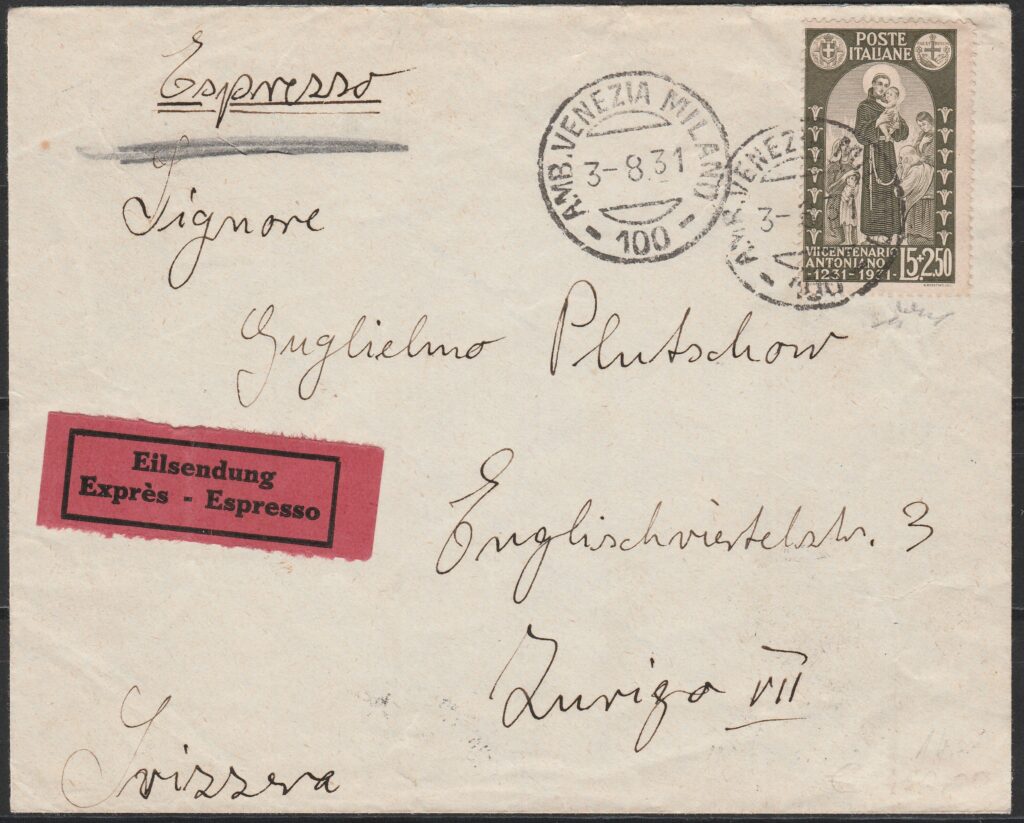 Espresso
Signore
Guglielmo Plutschow
Englischviertelstr. 3
Zurigo VII
Svizzera
Eilsendung
Exprès - Espresso
AMB. VENEZIA MILANO
3-8.31
- 100 -
POSTE
ITALIANE
VII CENTENARIO
ANTONIANO
1231-1931
L5+2.50